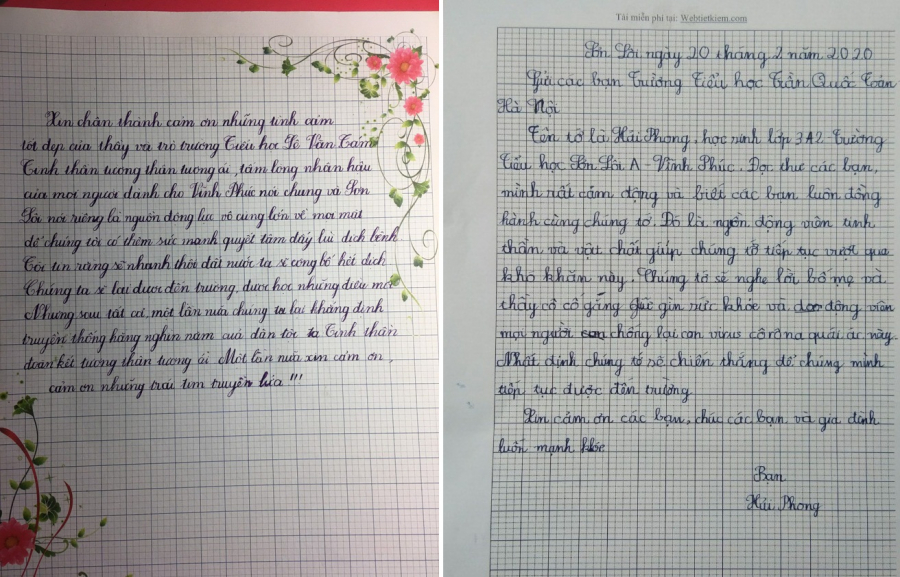 Xin chân thành cảm ơn những tình cảm
tốt đẹp của thầy và trò trường Tiểu học Lê Văn Tám
Tinh thần tương thân tương ái, tấm lòng nhân hậu
của mọi người dành cho Vĩnh Phúc nói chung và Sơn
Lôi nói riêng là nguồn động lực vô cùng lớn về mọi mặt
để chúng tôi có thêm sức mạnh quyết tâm đẩy lùi dịch bệnh
Tôi tin rằng sẽ nhanh thôi đất nước ta sẽ công bố hết dịch
Chúng ta sẽ lại được đến trường, được học những điều mới
Nhưng sau tất cả, một lần nữa chúng ta lại khẳng định
truyền thống hàng nghìn năm của dân tộc ta Tinh thần
đoàn kết tương thân tương ái Một lần nữa xin cảm ơn,
cảm ơn những trái tim truyền lửa !!!
Tải miễn phí tại: Webtietkiem.com
Sơn Lôi ngày 20 tháng 2 năm 2020
Gửi các bạn Trường Tiểu học Trần Quốc Toản
Hà Nội
Tên tớ là Hải Phong, học sinh lớp 3A2 Trường
Tiểu học Sơn Lôi A Vĩnh Phúc. Đọc thư các bạn,
mình rất cảm động và biết các bạn luôn đồng
hành cùng chúng tớ. Đó là nguồn động viên tinh
thần và vật chất giúp chúng tớ tiếp tục vượt qua
khó khăn này. Chúng tớ sẽ nghe lời bố mẹ và
thầy cô cố gắng giữ gìn sức khỏe và động viên
mọi người chống lại con virus côrôna quái ác này.
Nhất định chúng tớ sẽ chiến thắng để chúng mình
tiếp tục được đến trường
Xin cảm ơn các bạn, chúc các bạn và gia đình
luôn mạnh khỏe
Bạn
Hải Phong